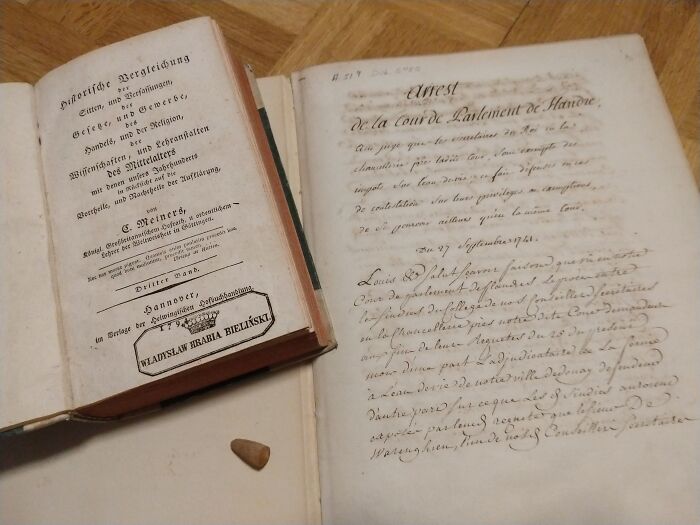 Historische Vergleichung
der
Sitten, und Verfassungen,
der
Gesetze, und Gewerbe,
des
Handels, und der Religion,
der
Wissenschaften, und Lehranstalten
des Mittelalters
mit denen unsers Jahrhunderts
in Rücksicht auf die
Vortheile, und Nachtheile der Aufklärung,
von
C. Meiners,
Königl. Großbritannischem Hofrath, u. ordentlichem
Lehrer der Weltweisheit in Göttingen.
Dritter Band.
Hannover,
im Verlage der Helwingischen Hofbuchhandlung.
179
WŁADYSŁAW HRABIA BIELIŃSKI
Arrest
de la Cour de Parlement de Flandre,
Qui juge que les secretaires du Roi en la
chancellerie près ladite Cour, Sont exempts des
impôts Sur leau de vie,
de contestation Sur leurs privileges ou exemptions,
de se pourvoir ailleurs qu'en la même Cour.
Du 27 Septembre 1741.
Louis &c Salut scavoir faisons que vû en notre
Cour de parlement de flandres Le procès entre
les Sindics du College de nos Conseillers Secretaires
en la Chancellerie près notre dite Cour demandeurs
aux fins de leurs Requetes du 28 du present
mois d'une part L'adjudicataire de La ferme
à Leau de vie de notre ville de douay deffendeur
dautre part Sur ce que Les dits Sindics auroient
exposés par leur dite requete que le Sieur De
Warenghien, Conseiller Secretaire